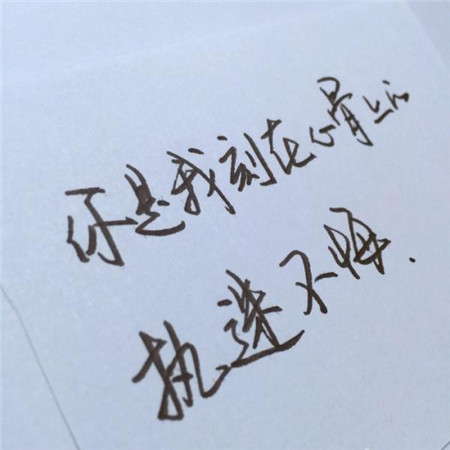 你是我刻在心骨上的
执迷不悔.